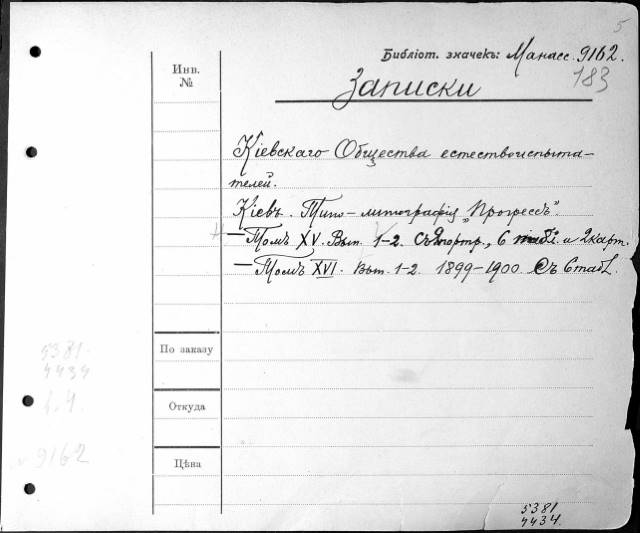 5
Библіот. значекъ: Манасс. 9162.
183
Инв.
№
Записки
Кіевскаго Общества естествоиспыта-
телей.
Кіевъ. Типо-литографія „Прогрессъ“.
— Томъ XV. Вып. 1-2. Съ портр., 6 табл. и 2 карт.
— Томъ XVI. Вып. 1-2. 1899-1900. Съ 6 табл.
По заказу
5381
4434
Откуда
9162
Цѣна
5381
4434.